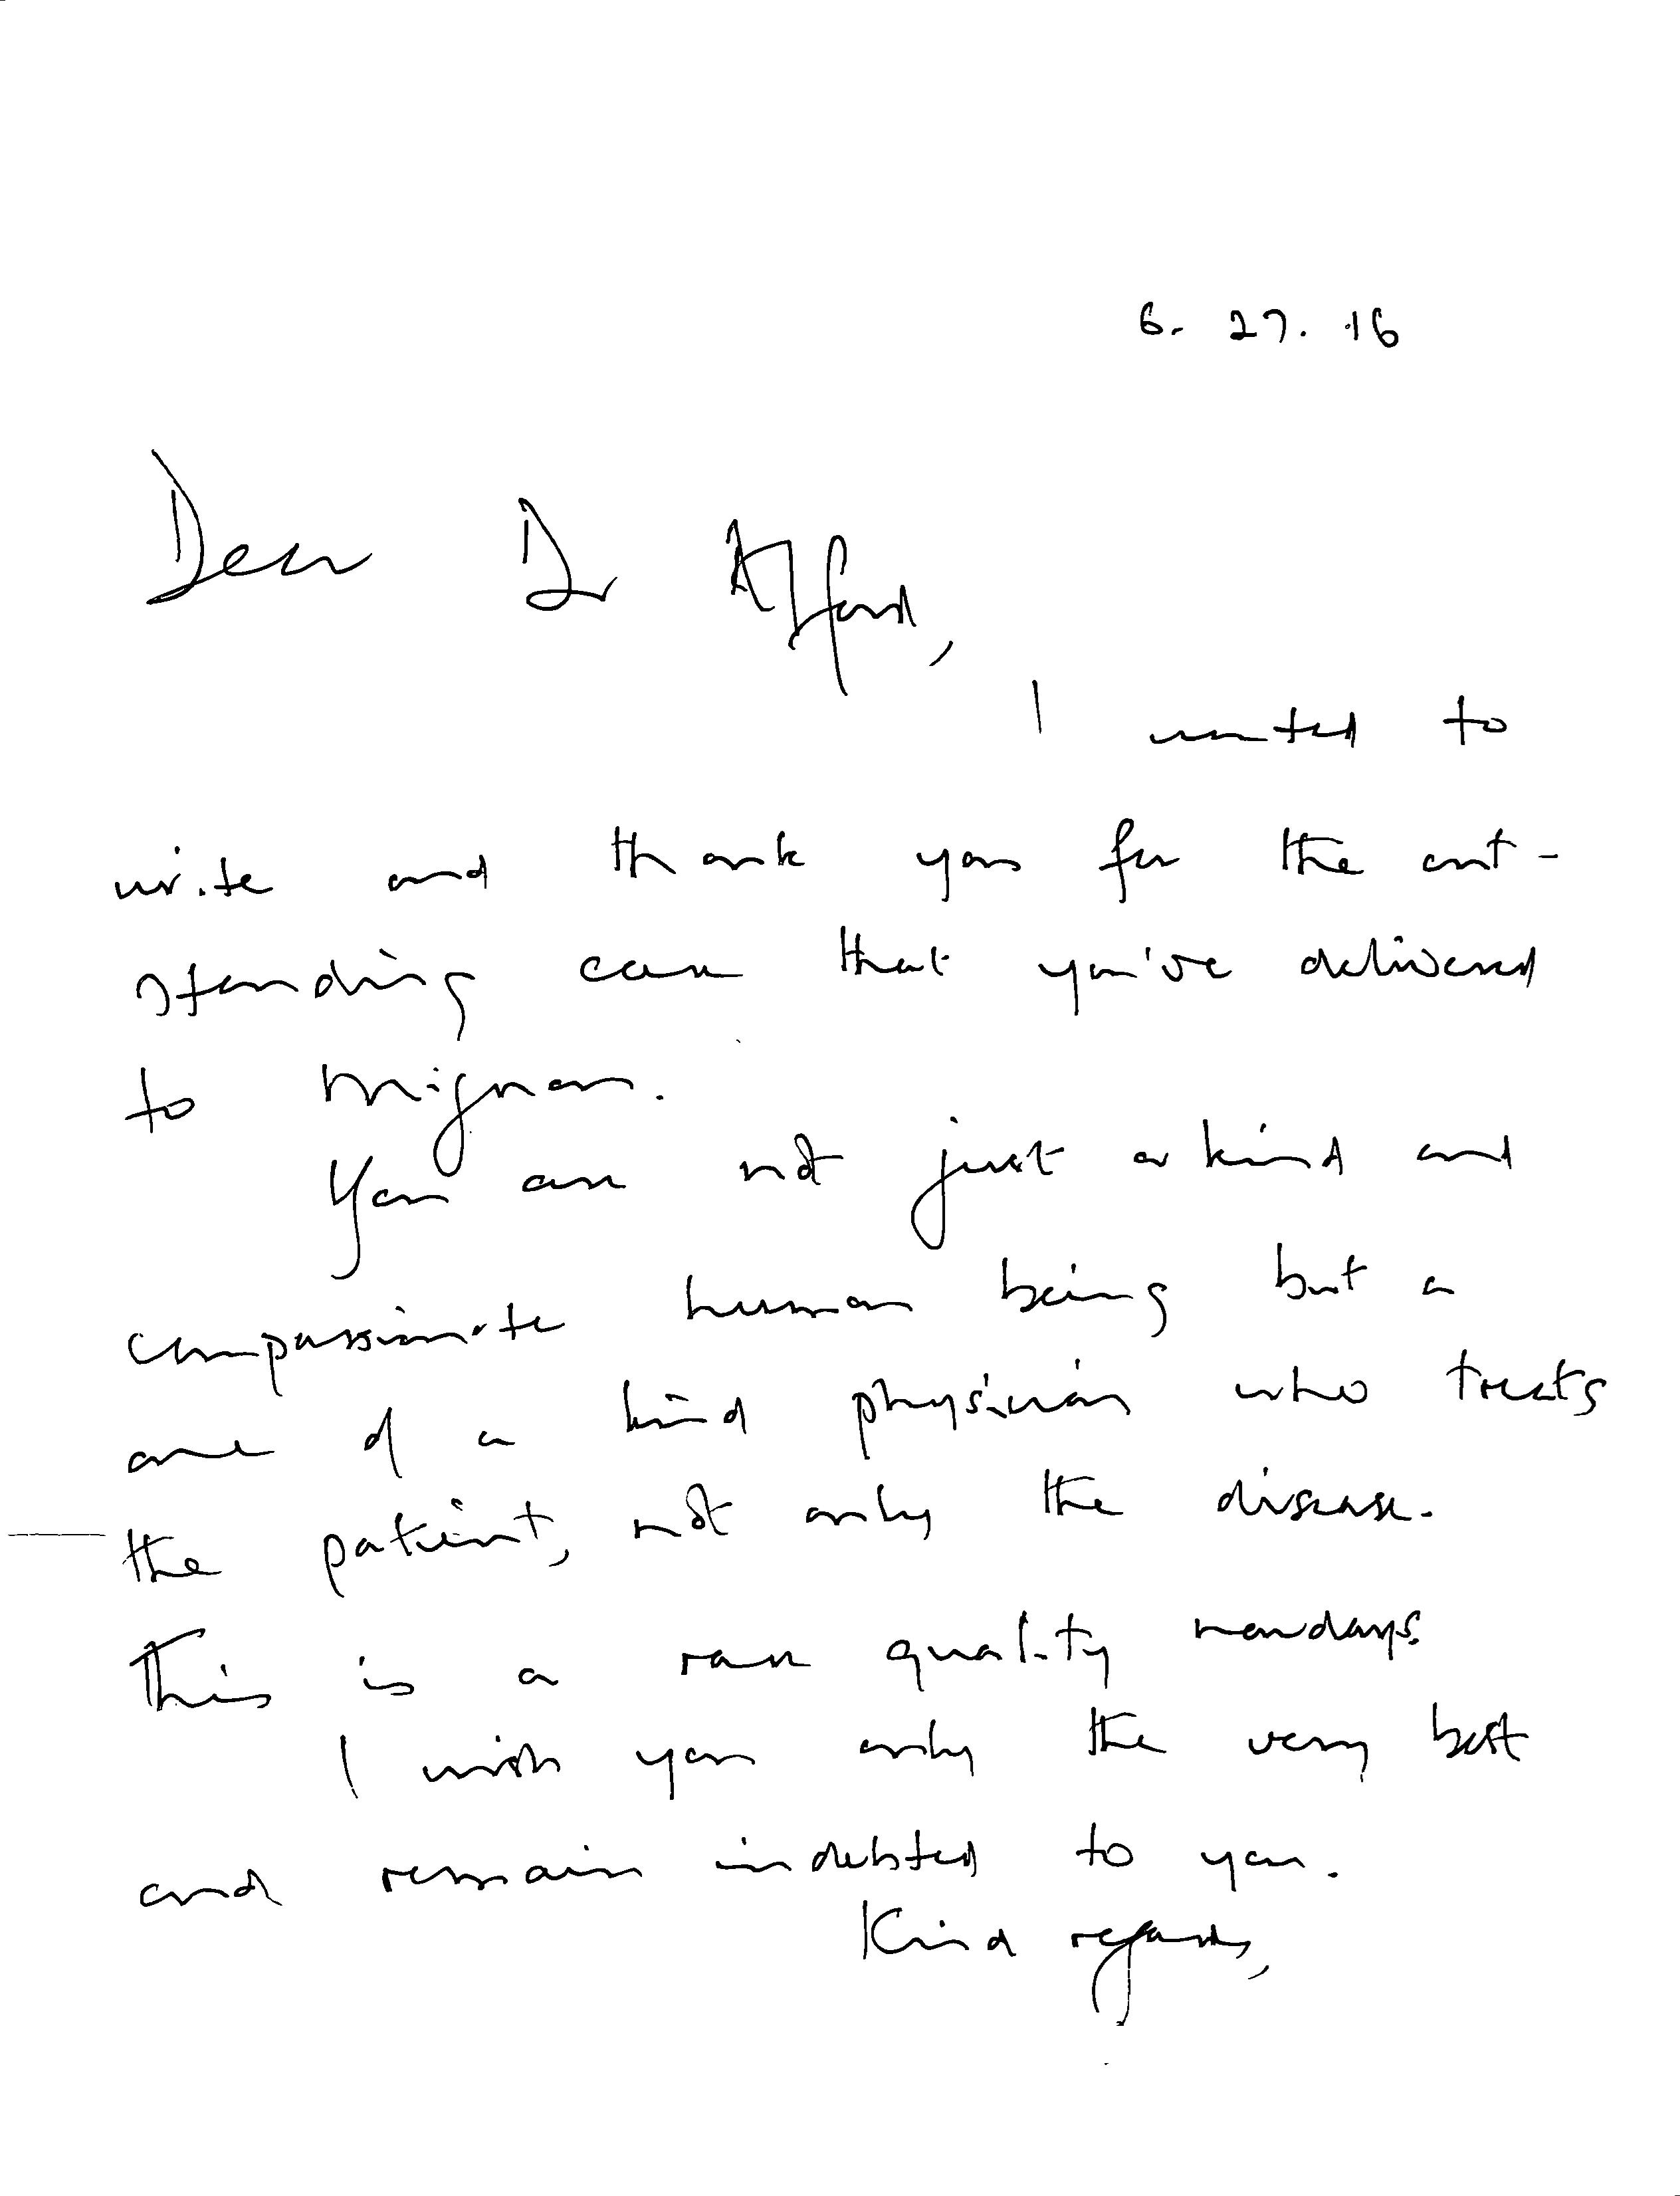 6. 27. 16
Dear Dr Alford,
I wanted to
write and thank you for the out-
standing care that you've delivered
to Mignon.
You are not just a kind and
compassionate human being but a
one of a kind physician who treats
the patient, not only the disease.
This is a rare quality nowdays.
I wish you only the very best
and remain indebted to you.
Kind regards,